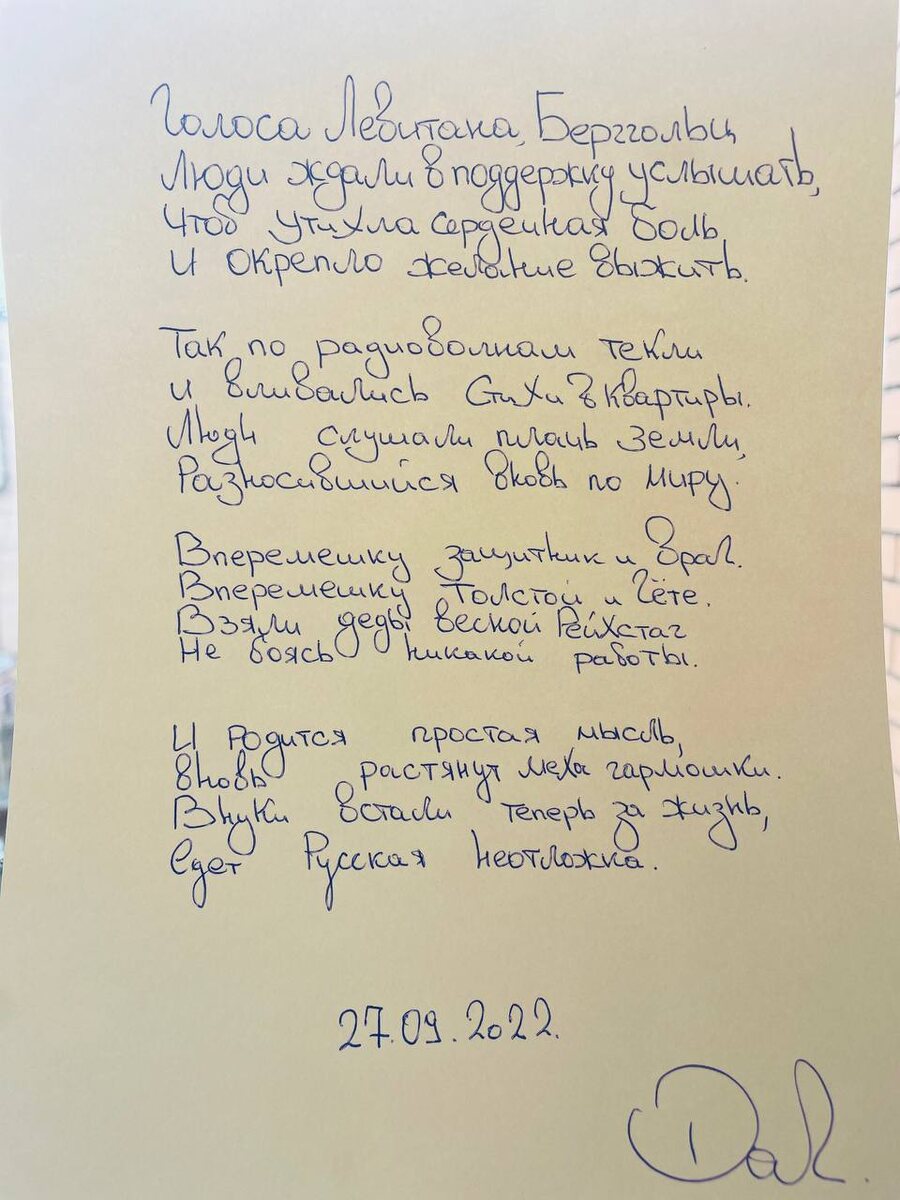 Голоса Левитана, Берггольц
Люди ждали в поддержку услышать,
Чтоб утихла сердечная боль
И окрепло желание выжить.
Так по радиоволнам текли
и вливались Стихи в квартиры.
Люди слушали плачь Земли,
Разносившийся вновь по Миру.
Вперемешку защитник и враг.
Вперемешку Толстой и Гёте.
Взяли деды весной Рейхстаг
Не боясь никакой работы.
И Родится простая мысль,
вновь растянут меха гармошки.
Внуки встали теперь за жизнь,
Едет Русская Неотложка.
27.09.2022.